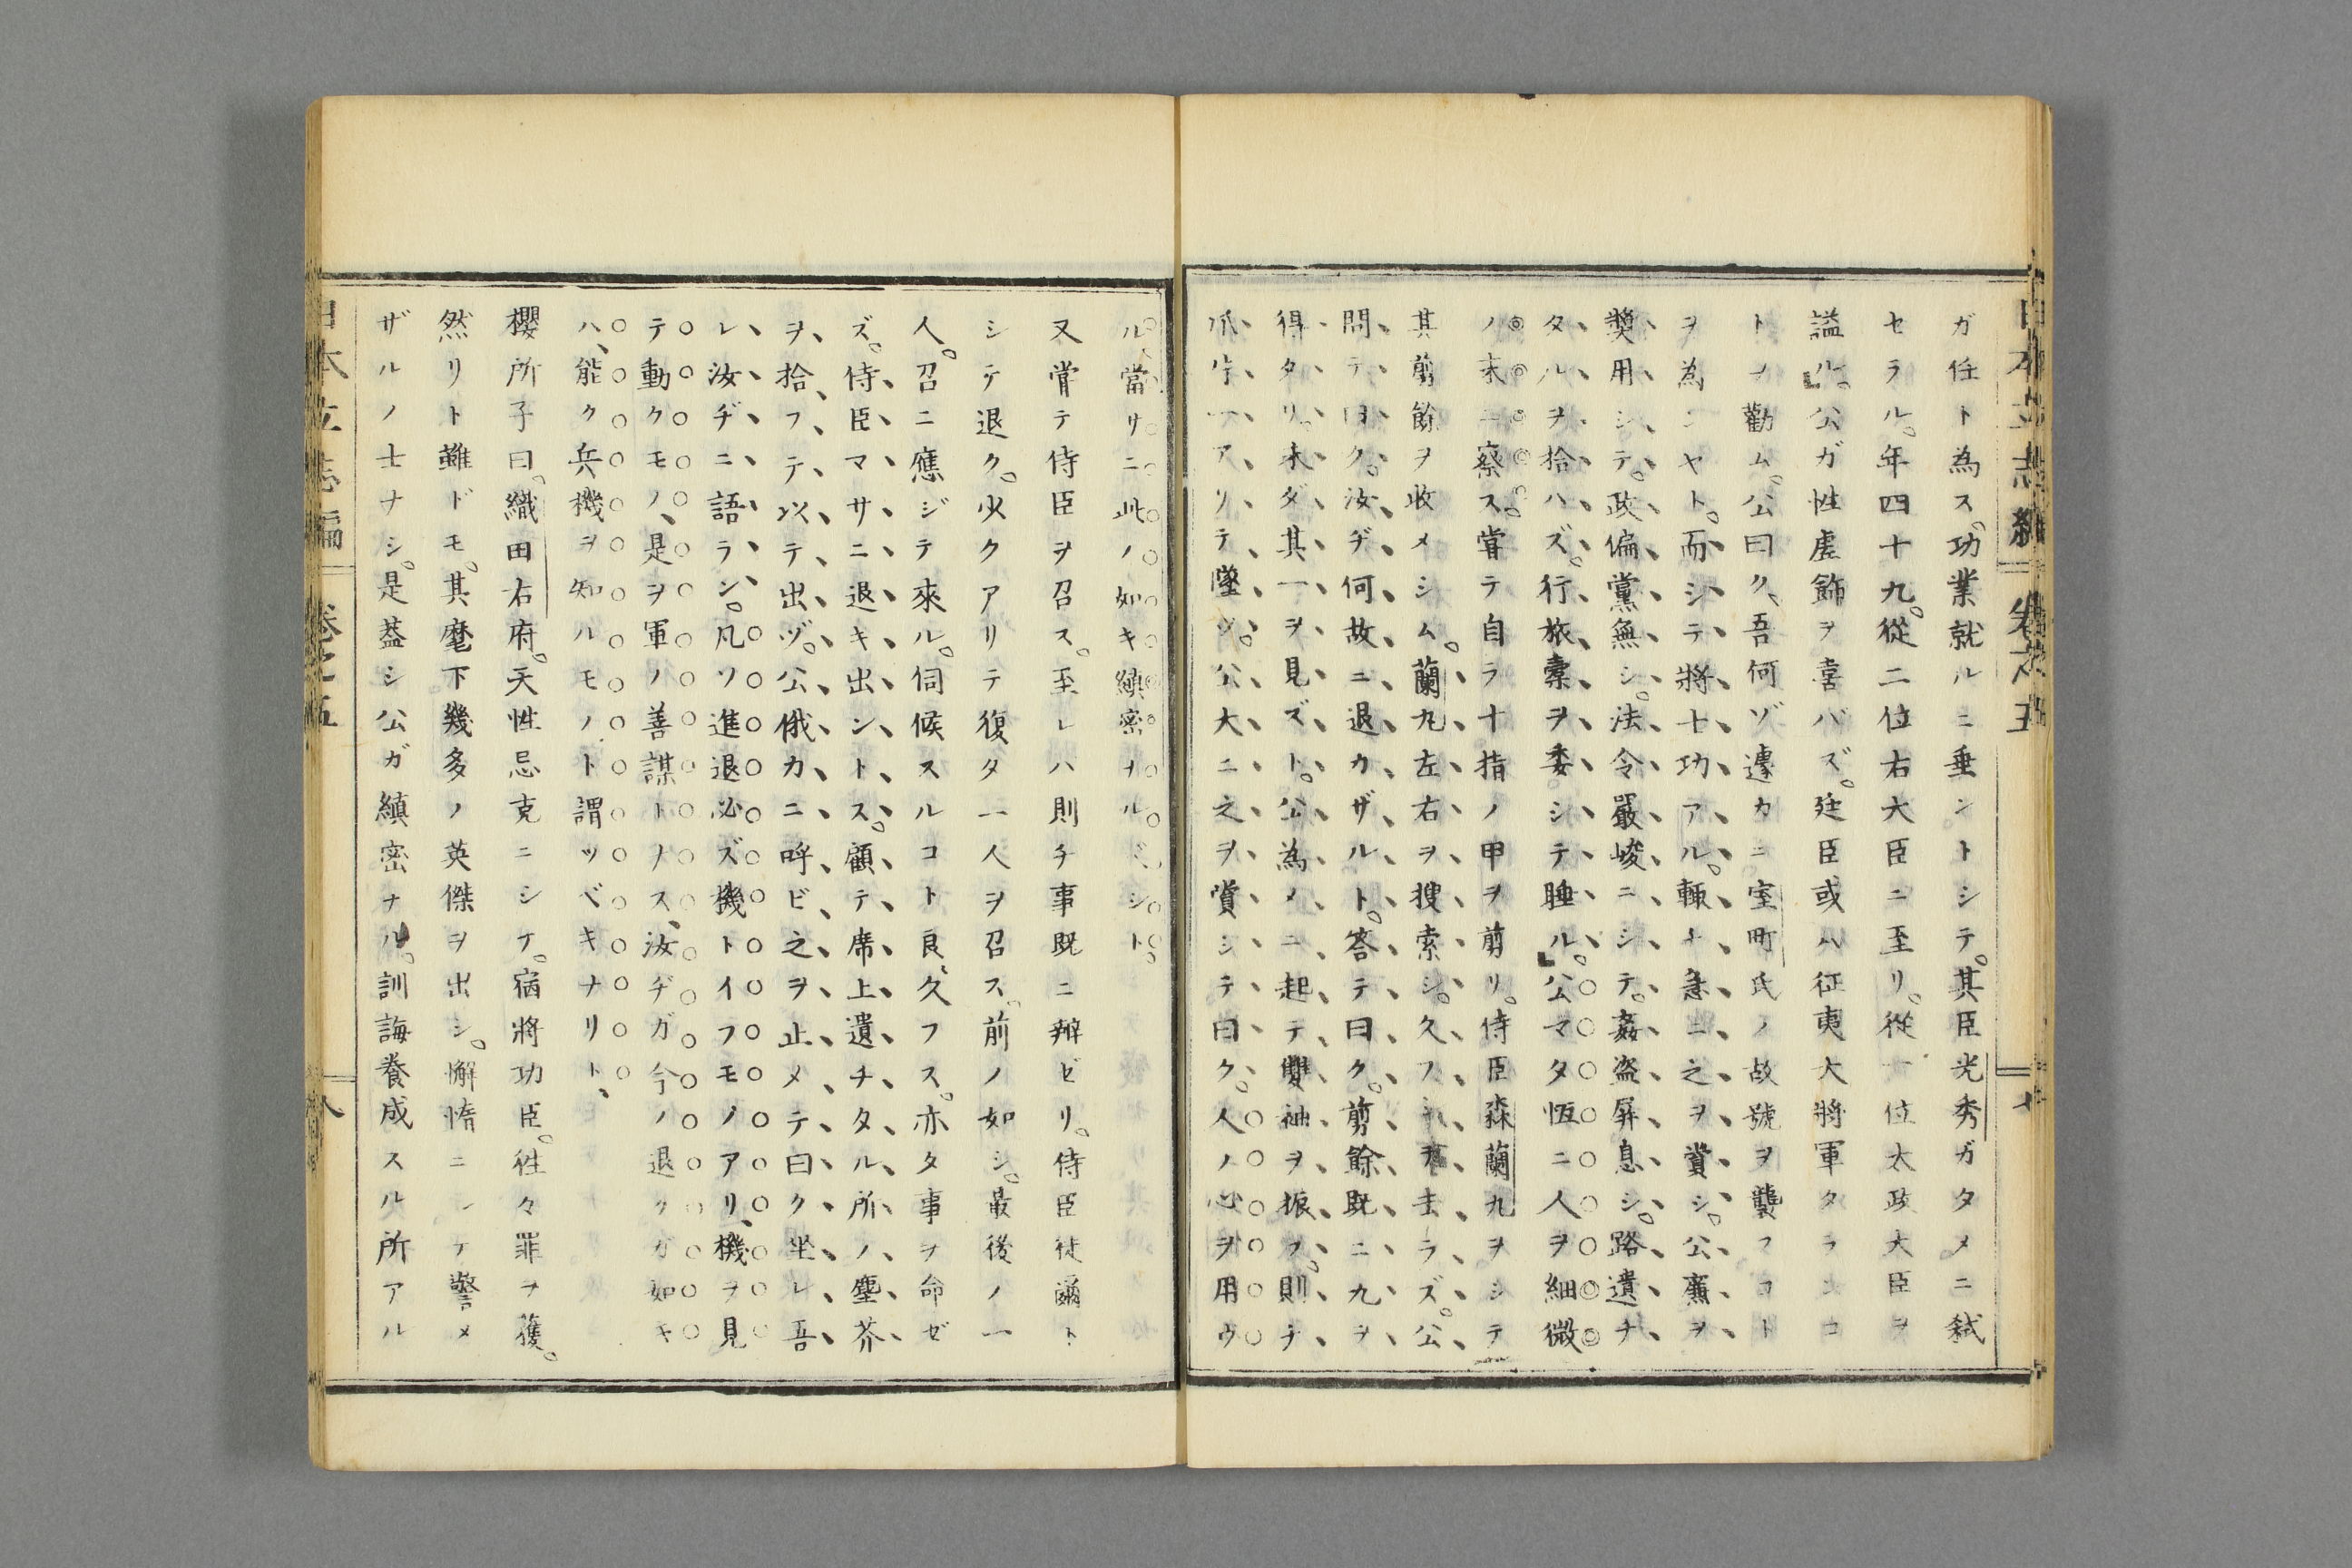 ガ任ト為ス。功業就ルニ垂ントシテ。其臣光秀ガタメニ弑
セラル。年四十九。從二位右大臣ニ至リ。從一位太政大臣ヲ
謚ル。」公ガ性虛飾ヲ喜バズ。廷臣或ハ征夷大將軍タランコ
トヲ勸ム。公曰ク、吾何ゾ遽カニ室町氏ノ故號ヲ襲フコト
ヲ為ンヤト。而シテ將士功アル。輙チ急ニ之ヲ賞シ。公廉ヲ
奬用シテ。政偏黨無シ。法令嚴峻ニシテ。姦盜屏息シ。路遺チ
タルヲ拾ハズ。行旅橐ヲ委シテ睡ル。」公マタ恆ニ人ヲ細微
ノ末ニ察ス。嘗テ自ラ十指ノ甲ヲ剪リ。侍臣森蘭丸ヲシテ
其剪餘ヲ收メシム。蘭丸左右ヲ搜索シ。久フシテ去ラズ。公
問テ曰ク。汝ヂ何故ニ退カザルト。答テ曰ク。剪餘既ニ九ヲ
得タリ。未ダ其一ヲ見ズト。公為メニ起テ雙袖ヲ振フ。則チ
爪片一アリテ墜ツ。公大ニ之ヲ賞シテ曰ク。人ノ心ヲ用ウ
ル、當サニ此ノ如キ縝密ナルベシト。
又嘗テ侍臣ヲ召ス。至レハ則チ事既ニ辨ゼリ。侍臣徒爾ト
シテ退ク。少クアリテ復タ一人ヲ召ス。前ノ如シ。最後ノ一
人。召ニ應ジテ來ル。伺候スルコト良、久フス。亦タ事ヲ命ゼ
ズ。侍臣マサニ退キ出ントス。顧テ席上遺チタル所ノ塵芥
ヲ拾フテ以テ出ヅ。公俄カニ呼ビ之ヲ止メテ曰ク坐レ吾
レ汝ヂニ語ラン。凡ソ進退必ズ機トイフモノアリ、機ヲ見
テ動クモノ、是ヲ軍ノ善謀トナス、汝ヂガ今ノ退クガ如キ
ハ、能ク兵機ヲ知ルモノト謂ツベキナリト、
櫻所子曰。織田右府。天性忌克ニシテ。宿將功臣。徃々罪ヲ獲。
然リト雖ドモ。其麾下幾多ノ英傑ヲ出シ。懈惰ニシテ警メ
ザルノ士ナシ。是葢シ公ガ縝密ナル。訓誨養成スル所アル
日本立志編 卷之五 八